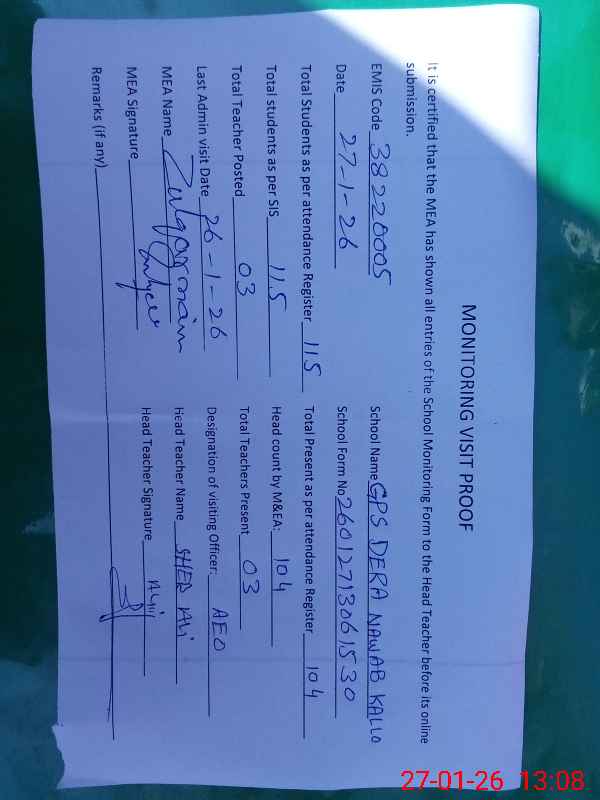 MONITORING VISIT PROOF
It is certified that the MEA has shown all entries of the School Monitoring Form to the Head Teacher before its online
submission.
EMIS Code 38220005 School Name GPS DERA NAWAB KALLO
Date 27-1-26 School Form No 26012713061530
Total Students as per attendance Register 115 Total Present as per attendance Register 104
Total students as per SIS 115 Head count by M&EA: 104
Total Teacher Posted 03 Total Teachers Present 03
Last Admin visit Date 26-1-26 Designation of visiting Officer: AEO
MEA Name Zulqarnain Head Teacher Name SHER Ali
MEA Signature Head Teacher Signature
Remarks (if any)
27-01-26 13:08